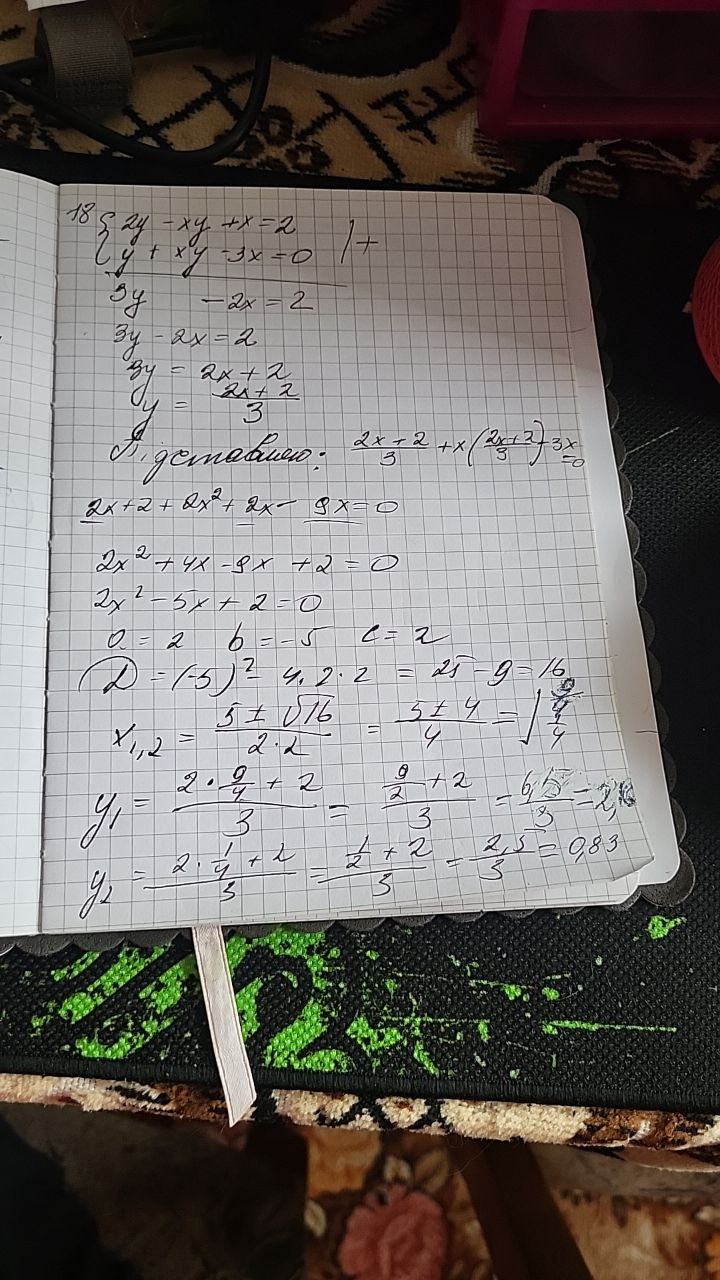 18 { 2y - xy + x = 2
{ y + xy - 3x = 0 | +
3y - 2x = 2
3y - 2x = 2
3y = 2x + 2
y = (2x + 2)/3
Підставляю: (2x + 2)/3 + x((2x + 2)/3) - 3x = 0
2x + 2 + 2x² + 2x - 9x = 0
2x² + 4x - 9x + 2 = 0
2x² - 5x + 2 = 0
a = 2 b = -5 c = 2
D = (-5)² - 4·2·2 = 25 - 9 = 16
x₁,₂ = (5 ± √16)/(2·2) = (5 ± 4)/4 = [ 9/4
1/4
y₁ = (2·9/4 + 2)/3 = (9/2 + 2)/3 = 6,5/3 = 2,
y₂ = (2·1/4 + 2)/3 = (1/2 + 2)/3 = 2,5/3 = 0,83